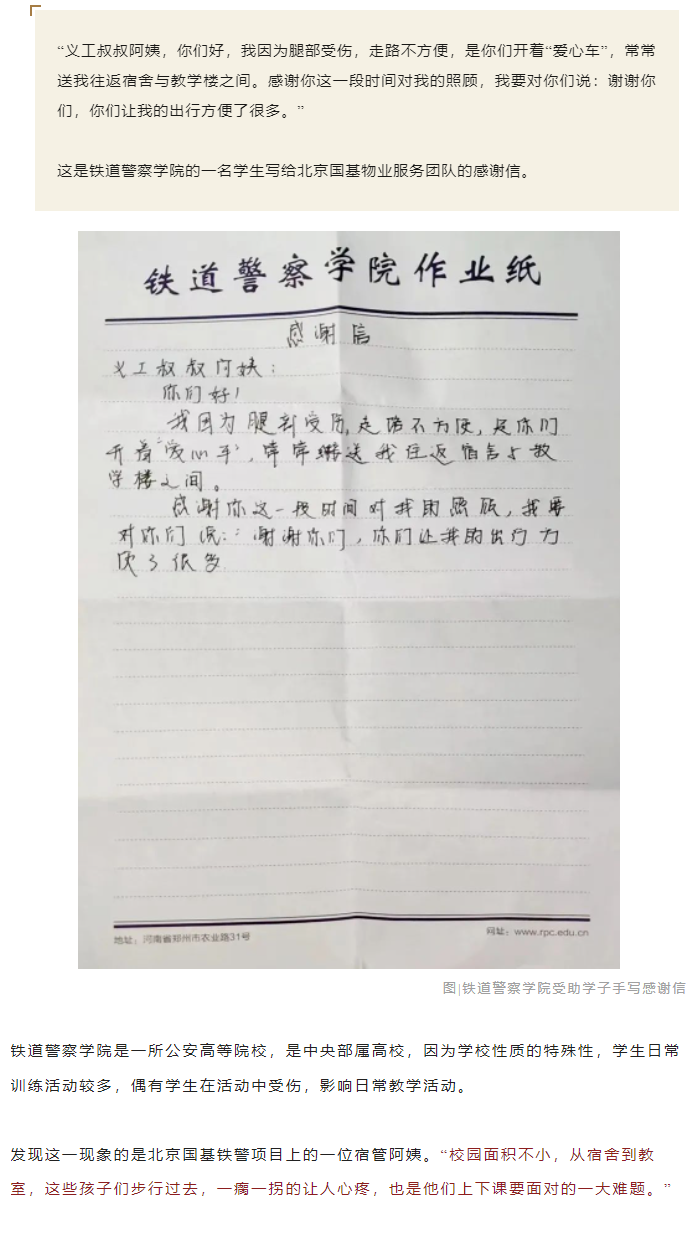 “义工叔叔阿姨，你们好，我因为腿部受伤，走路不方便，是你们开着“爱心车”，常常
送我往返宿舍与教学楼之间。感谢你这一段时间对我的照顾，我要对你们说：谢谢你
们，你们让我的出行方便了很多。”
这是铁道警察学院的一名学生写给北京国基物业服务团队的感谢信。
铁道警察学院作业纸
感谢信
义工叔叔阿姨：
你们好！
我因为腿部受伤，走路不方便，是你们
开着“爱心车”，常常送我往返宿舍与教
学楼之间。
感谢你这一段时间对我的照顾，我要
对你们说：“谢谢你们，你们让我的出行方
便了很多
地址：河南省郑州市农业路31号
网址：www.rpc.edu.cn
图|铁道警察学院受助学子手写感谢信
铁道警察学院是一所公安高等院校，是中央部属高校，因为学校性质的特殊性，学生日常
训练活动较多，偶有学生在活动中受伤，影响日常教学活动。
发现这一现象的是北京国基铁警项目上的一位宿管阿姨。“校园面积不小，从宿舍到教
室，这些孩子们步行过去，一瘸一拐的让人心疼，也是他们上下课要面对的一大难题。”